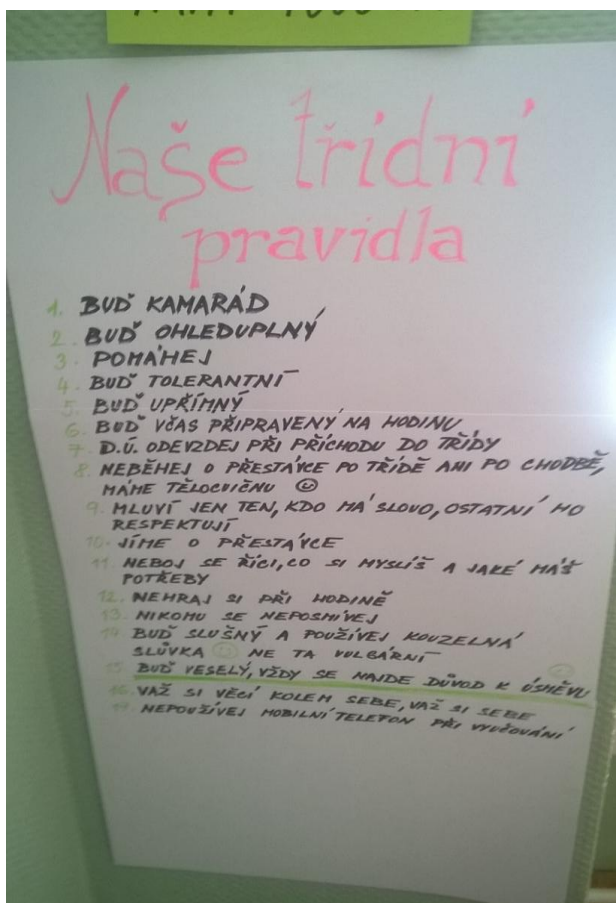 Naše třídní
pravidla
1. BUĎ KAMARÁD
2. BUĎ OHLEDUPLNÝ
3. POMÁHEJ
4. BUĎ TOLERANTNÍ
5. BUĎ UPŘÍMNÝ
6. BUĎ VČAS PŘIPRAVENÝ NA HODINU
7. D.Ú. ODEVZDEJ PŘI PŘÍCHODU DO TŘÍDY
8. NEBĚHEJ O PŘESTÁVCE PO TŘÍDĚ ANI PO CHODBĚ,
MÁME TĚLOCVIČNU ☺
9. MLUVÍ JEN TEN, KDO MÁ SLOVO, OSTATNÍ HO
RESPEKTUJÍ
10. JÍME O PŘESTÁVCE
11. NEBOJ SE ŘÍCI, CO SI MYSLÍŠ A JAKÉ MÁŠ
POTŘEBY
12. NEHRAJ SI PŘI HODINĚ
13. NIKOMU SE NEPOSMÍVEJ
14. BUĎ SLUŠNÝ A POUŽÍVEJ KOUZELNÁ
SLŮVKA ☺ NE TA VULGÁRNÍ
15. BUĎ VESELÝ, VŽDY SE NAJDE DŮVOD K ÚSMĚVU ☺
16. VAŽ SI VĚCÍ KOLEM SEBE, VAŽ SI SEBE
17. NEPOUŽÍVEJ MOBILNÍ TELEFON PŘI VYUČOVÁNÍ